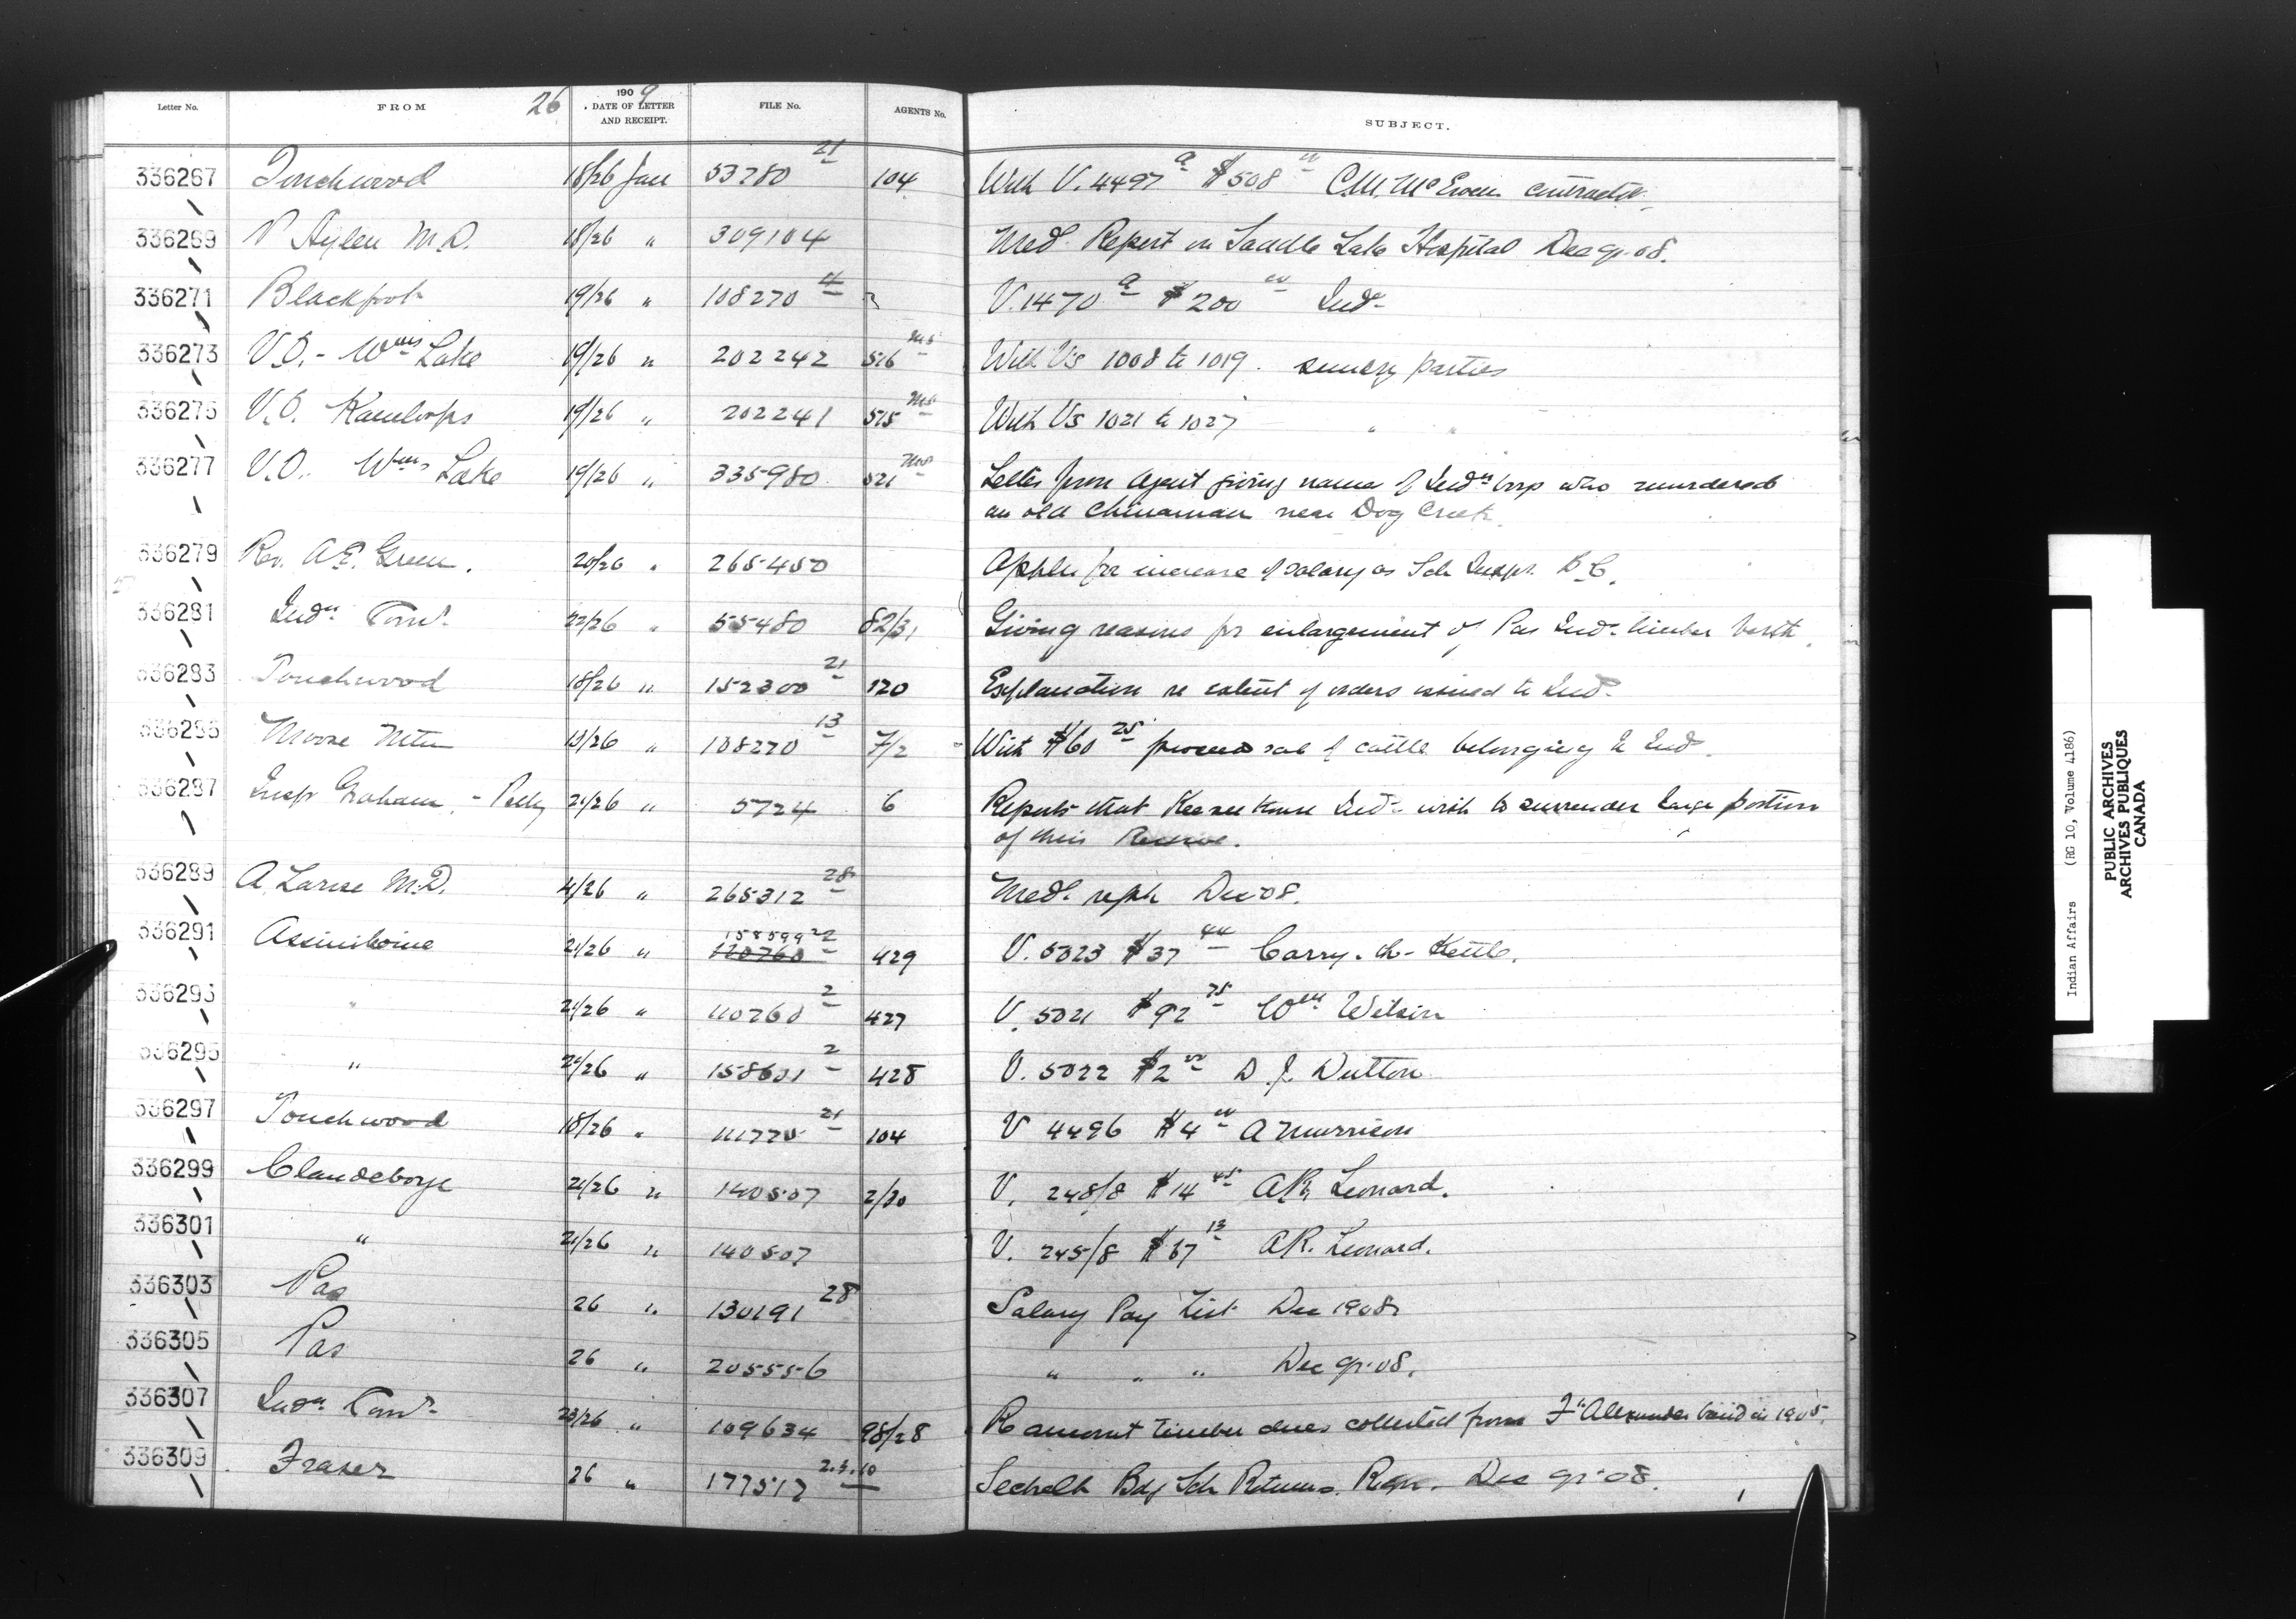 Letter No. FROM 26 1909 DATE OF LETTER AND RECEIPT. FILE No. AGENTS No. SUBJECT.
336267 Touchwood 18/26 Jan 53780 21 104 With V. 4497 a $508 00 C.M. McEwen contractor
336269 P Aylen M.D. 18/26 " 309104 Med. Report on Saddle Lake Hospital Dec qr. 08.
336271 Blackfoot 19/26 " 108270 4 V. 1470 a $200 00 Inds
336273 V.O. - Wms Lake 19/26 " 202242 516 With Vs 1008 to 1019. sundry parties
336275 V.O. Kamloops 19/26 " 202241 515 With Vs 1021 to 1027 " "
336277 V.O. Wms Lake 19/26 " 335980 521 Letter from Agent giving name of Indn boy who murdered
an old Chinaman near Dog Creek.
336279 Rev. A.E. Green. 20/26 " 265450 Appln for increase of salary as Sch Inspr. B.C.
336281 Indn Comr. 22/26 " 55480 82/31 Giving reasons for enlargement of Pas Inds timber berth.
336283 Touchwood 18/26 " 152300 21 120 Explanation re extent of orders issued to Inds
336285 Moose Mtn 19/26 " 108270 13 7/2 With $60 25 proceeds sale of cattle belonging to Inds.
336287 Insp Graham, - Pelly 21/26 " 5724 6 Reports that Keeseekouse Inds wish to surrender large portion
of their Reserve.
336289 A. Larose M.D. 4/26 " 265312 28 Med. reph Dec 08.
336291 Assiniboine 21/26 " 158599 22 110760 2 429 V. 5023 $37 44 Carry-the-Kettle.
336293 " 21/26 " 110760 2 427 V. 5021 $92 75 Wm Wilson
336295 " 21/26 " 158601 2 428 V. 5022 $2 00 D.J. Dutton
336297 Touchwood 18/26 " 111770 21 104 V 4496 $4 00 A Murrison
336299 Clandeboye 21/26 " 140507 2/30 V. 248/8 $14 45 A.R. Leonard.
336301 " 21/26 " 140507 V. 245/8 $67 13 A.R. Leonard.
336303 Pas 26 " 130191 28 Salary Pay List Dec 1908
336305 Pas 26 " 205556 " " " Dec qr. 08.
336307 Indn Comr. 23/26 " 109634 98/28 R amount timber dues collected from Ft Alexander band in 1905.
336309 Fraser 26 " 177517 2.3.10 Sechelt Bdg Sch Returns. Dec qr. 08.
Indian Affairs (RG 10, Volume 4186)
PUBLIC ARCHIVES
ARCHIVES PUBLIQUES
CANADA